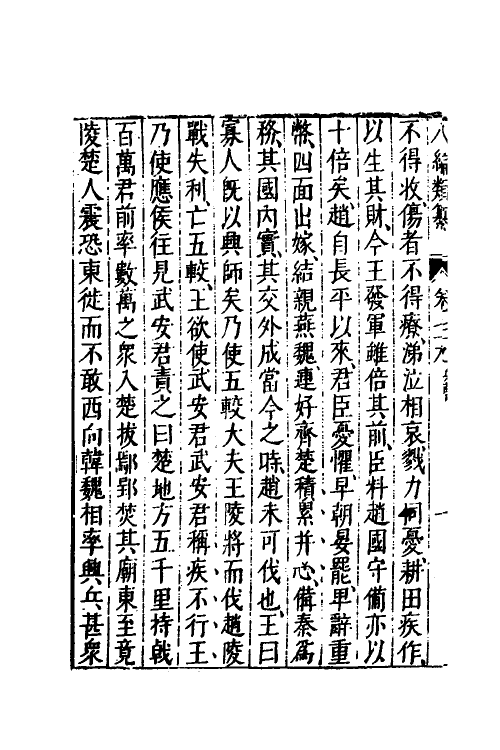 八編類纂 卷二十九
不得收傷者不得療涕泣相哀戮力同憂耕田疾作
以生其財今王發軍雖倍其前臣料趙國守備亦以
十倍矣趙自長平以來君臣憂懼早朝晏罷早辭重
幣四面出嫁結親燕魏連好齊楚積累并心備秦爲
務其國內實其交外成當今之時趙未可伐也王曰
寡人旣以興師矣乃使五較大夫王陵將而伐趙陵
戰失利亡五較王欲使武安君武安君稱疾不行王
乃使應侯往見武安君責之曰楚地方五千里持戟
百萬君前率數萬之衆入楚拔鄢郢焚其廟東至竟
陵楚人震恐東徙而不敢西向韓魏相率興兵甚衆